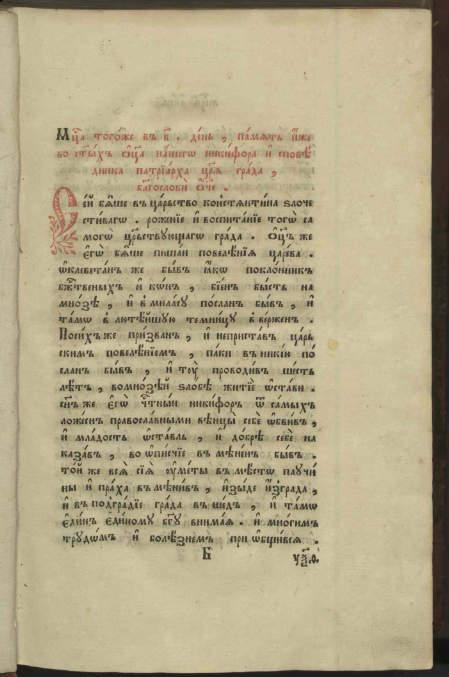 Мц҃а тогоже въ в҃ . де́нь , па́мѧть и҆́же
во ст҃ы́хъ ѻ҆ц҃а̀ на́шегѡ никифора и҆сповѣ́
дника патрїа́рха цр҃ѧ̀ гра́да ,
благословѝ ѻ҆́ч҃е .
Се́й бѧ́ше въ ца́рьство констѧнти́на ѕлоче
сти́вагѡ . рожнїе и҆ воспита́нїе тогѡ̀ са
могѡ̀ цр҃ствующагѡ гра́да . ѻ҆ц҃ъ же
є҆гѡ̀ бѧ́ше писа́й повелѣ́нїѧ царе́ва .
ѡ҆клевета́нъ же бы́въ ꙗ҆́кѡ поклонникъ
бж҃твеныхъ и҆кѡ́нъ , бїе́нъ бы́сть на
мно́ѕѣ , и҆ в мила́сꙋ посла́нъ бы́въ , и҆
та́мѡ в лютѣ́йшꙋю темни́цꙋ вве́рженъ .
По си́хъ же призва́нъ , и҆ непристáвъ ца́рь
скимъ повелѣ́нїемъ , па́ки въ нїкїю по́
сланъ бы́въ , и҆ тꙋ̀ проводи́въ ше́сть
лѣ́тъ , во мно́ѕѣй ѕло́бѣ житїѐ ѡ҆ста́ви .
сн҃ъ же є҆гѡ̀ чⷭ҇тны́й никифоръ ѿ са́мыхъ
ложе́снъ правосла́вными вѣнцы̀ себѐ ѡ҆бви́въ ,
и҆ мла́дость ѡ҆ста́вль , и҆ до́брѣ себѐ на
каза́въ , во ѡ҆писнїе вмѣне́нъ бы́въ .
то́й же всѧ̑ сїѧ̑ ѹ҆ме́ты въ мѣ́стѡ паучи́
ны и҆ пра́ха въмѣни́въ , и҆зы́де и҆згра́да ,
и҆ въ подгра́дїе гра́да въше́дъ , и҆ та́мѡ
є҆ди́нъ є҆ди́номꙋ бг҃ꙋ внима́ѧ . и҆ мно́гимъ
трꙋдѡ́мъ и҆ болѣ́знемъ приѡбщи́всѧ .
Б